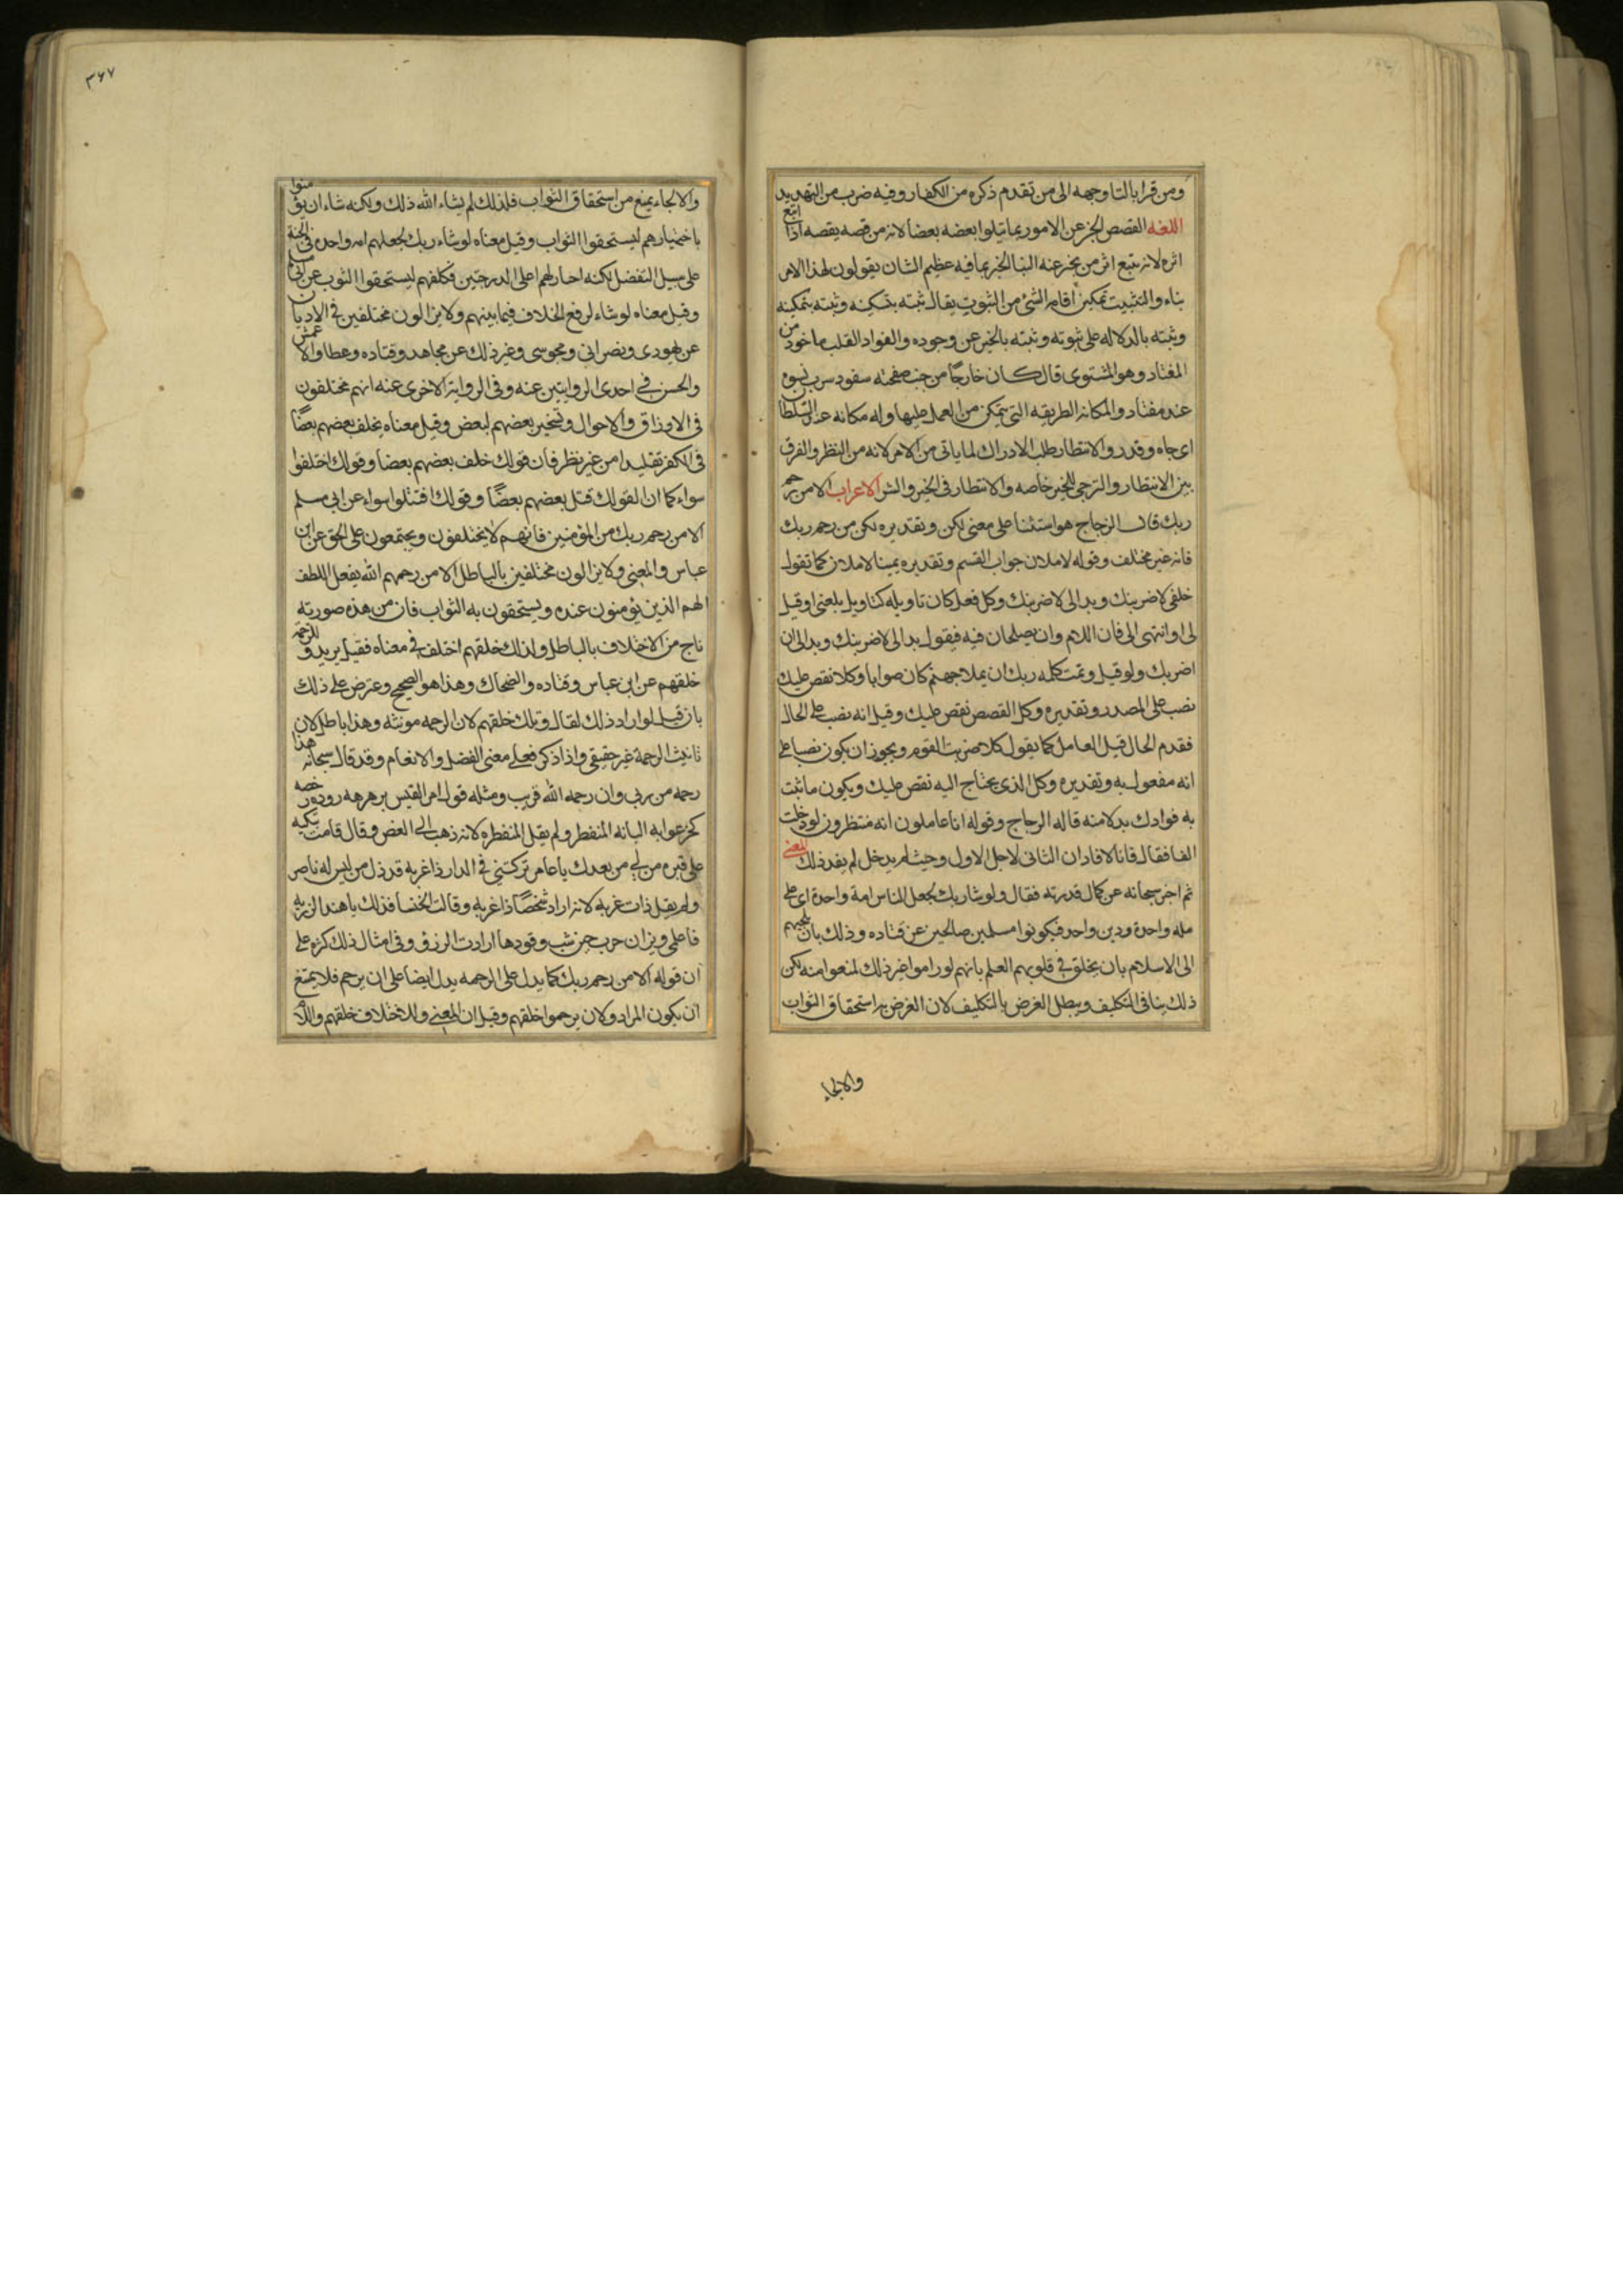 ومن قرا بالتا وجهه الى من تقدم ذكره من الكفار وفيه ضرب من التهديد
اللغه القصص الخبر عن الامور بما يتلوا بعضه بعضا لانه من قصه يقصه اذا اتبع
اثره لانه يتبع اثر من يخبر عنه النبا الخبر بما فيه عظيم الشان يقولون لهذا الامر
بناء والتثبيت تمكين اقامه الشئ من الثبوت يقال ثبته بتسكينه وثبته بتمكينه
وثبته بالدلاله على ثبوته وثبته بالخبر عن وجوده والفواد القلب ماخوذ من
المفتاد وهو المشتوى قال كان خارجا من جنب صفحته سفود سرب نسوه
عند مفتاد والمكانه الطريقه التى يتمكن من العمل عليها وله مكانه عند السلطا
اى جاه وقدر والانتطار طلب الادراك لما ياتى من الامر لانه من النظر والفرق
بين الانتطار والترجى للخير خاصه والانتطار فى الخير والشر الاعراب الا من رحم
ربك قال الزجاج هو استثنا على معنى لكن وتقديره لكن من رحم ربك
فانه غير مختلف وقوله لاملان جواب القسم وتقديره يمينا لاملان كما تقول
خلفى لاضربنك وبدا لى لاضربنك وكل فعل كان تاويله كتاويل بلغنى او قيل
لى او انتهى الى فان اللام وان يصلحان فيه فيقول بدا لى لاضربنك وبدا لى ان
اضربك ولو قيل وتمت كلمه ربك ان يملا جهنم كان صوابا وكلا نقص عليك
نصب على المصدر وتقديره وكل القصص نقص عليك وقيل انه نصب على الحال
فقدم الحال قبل العامل كما يقول كلا ضربت القوم ويجوز ان يكون نصبا على
انه مفعول به وتقديره وكل الذى يحتاج اليه نقص عليك ويكون ما نثبت
به فوادك بدلا منه قاله الزجاج وقوله انا عاملون انه منتظرون لو دخلت
الفا فقال فانا لافاد ان الثانى لاجل الاول وحيث لم يدخل لم يفد ذلك المعنى
ثم اخبر سبحانه عن كمال قدرته فقال ولو شا ربك لجعل الناس امة واحدة اى على
مله واحدة ودين واحد فيكونوا مسلمين صالحين عن قتاده وذلك بان يلجيهم
الى الاسلام بان يخلق فى قلوبهم العلم بانهم لو راموا غير ذلك لمنعوا منه لكن
ذلك ينافى التكليف ويبطل الغرض بالتكليف لان الغرض به استحقاق الثواب
والالجا
٣٦٧
والالجاء يمنع من استحقاق الثواب فلذلك لم يشاء الله ذلك ولكنه شاء ان يؤمنوا
باختيارهم ليستحقوا الثواب وقيل معناه لو شاء ربك لجعلهم امه واحده فى الجنة
على سبيل التفضل لكنه اختار لهم اعلى الدرجتين فكلفهم ليستحقوا الثوب عن ابى مسلم
وقيل معناه لو شاء لرفع الخلاف فيما بينهم ولا يزالون مختلفين فى الاديان
عن يهودى ونصرانى ومجوسى وغير ذلك عن مجاهد وقتاده وعطا والاعمش
والحسن فى احدى الروايتين عنه وفى الرواية الاخرى عنه انهم مختلفون
فى الارزاق والاحوال وتسخير بعضهم لبعض وقيل معناه يخلف بعضهم بعضًا
فى الكفر تقليدا من غير نظر فان قولك خلف بعضهم بعضا وقولك اختلفوا
سواء كما ان القولك قتل بعضهم بعضًا وقولك اقتتلوا سواء عن ابى مسلم
الا من رحم ربك من المؤمنين فانهم لا يختلفون ويجتمعون على الحق عن ابن
عباس والمعنى ولا يزالون مختلفين بالباطل الا من رحمهم الله بفعل اللطف
لهم الذين يؤمنون عنده ويستحقون به الثواب فان من هذه صورته
ناج من الاختلاف بالباطل ولذلك خلقهم اختلف فى معناه فقيل يريد وللرحمة
خلقهم عن ابن عباس وقتاده والضحاك وهذا هو الصحيح وعترض على ذلك
بان قيل لو اراد ذلك لقال وتلك خلقهم لان الرحمه مونثه وهذا باطل لان
تانيث الرحمة غير حقيقى واذا ذكر فعلى معنى الفضل والانعام وقد قال سبحانه هذا
رحمه من ربى وان رحمه الله قريب ومثله قول امر القيس برهرهه رودة رخصه
كخرعوابه البانه المنفطر ولم يقل المنفطره لانه ذهب الى الغصن وقال قامت تبكيه
على قبره من لى من بعدك يا عامر تركتنى فى الدار ذا غربه قد ذل من ليس له ناصر
ولم يقل ذات غربه لانه اراد شخصًا ذا غربه وقالت الخنسا فذلك يا هند الرزيه
فاعلمى ونيران حرب حين شب وقودها ارادت الرزؤ وفى امثال ذلك كثرة على
ان قوله الا من رحم ربك كما يدل على الرحمه يدل ايضا على ان يرحم فلا يمتنع
ان يكون المراد ولان يرحموا خلقهم وقيل ان المعنى وللاختلاف خلقهم واللام